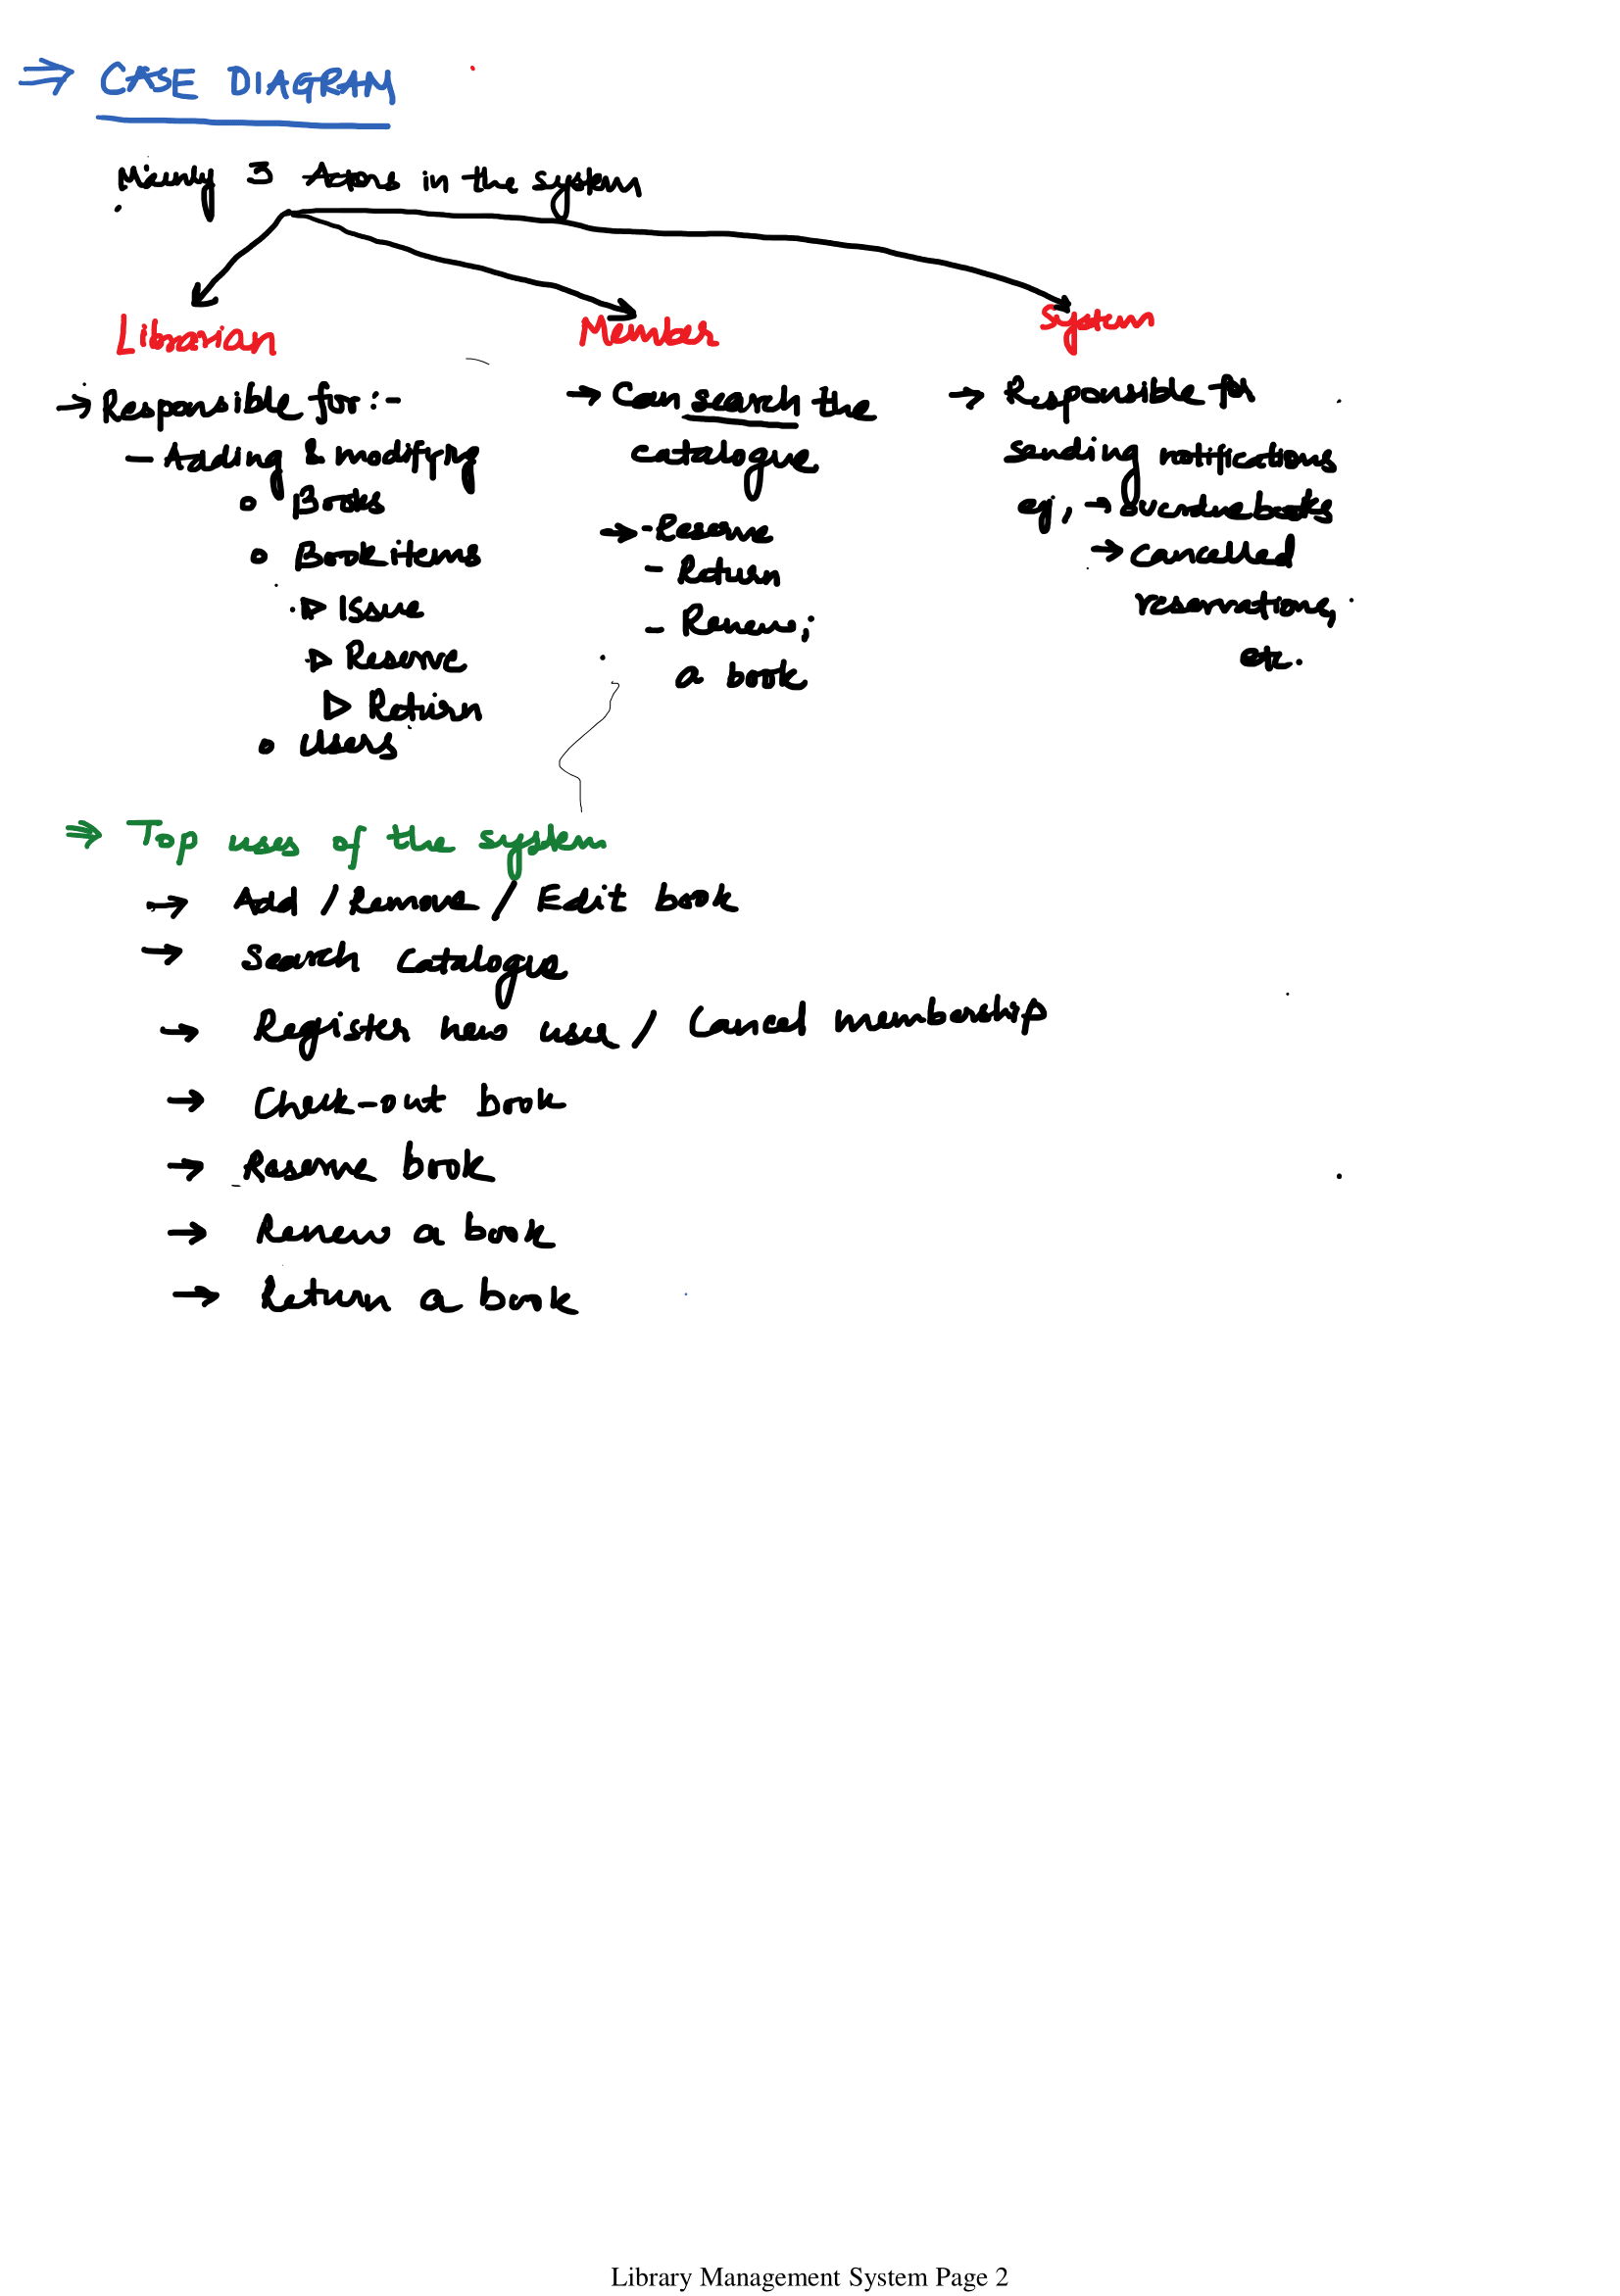 ⇒ CASE DIAGRAM
Mainly 3 Actors in the system
Librarian
→ Responsible for :-
– Adding & modifying
o Books
o Book items
▷ Issue
▷ Reserve
▷ Return
o Users
Member
→ Can search the
catalogue
→ - Reserve
- Return
- Renew;
a book
System
→ Responsible for
sending notifications
eg, → overdue books
→ cancelled
reservations,
etc.
⇒ Top uses of the system
→ Add / Remove / Edit book
→ Search catalogue
→ Register new user / Cancel membership
→ Check-out book
→ Reserve book
→ Renew a book
→ Return a book
Library Management System Page 2